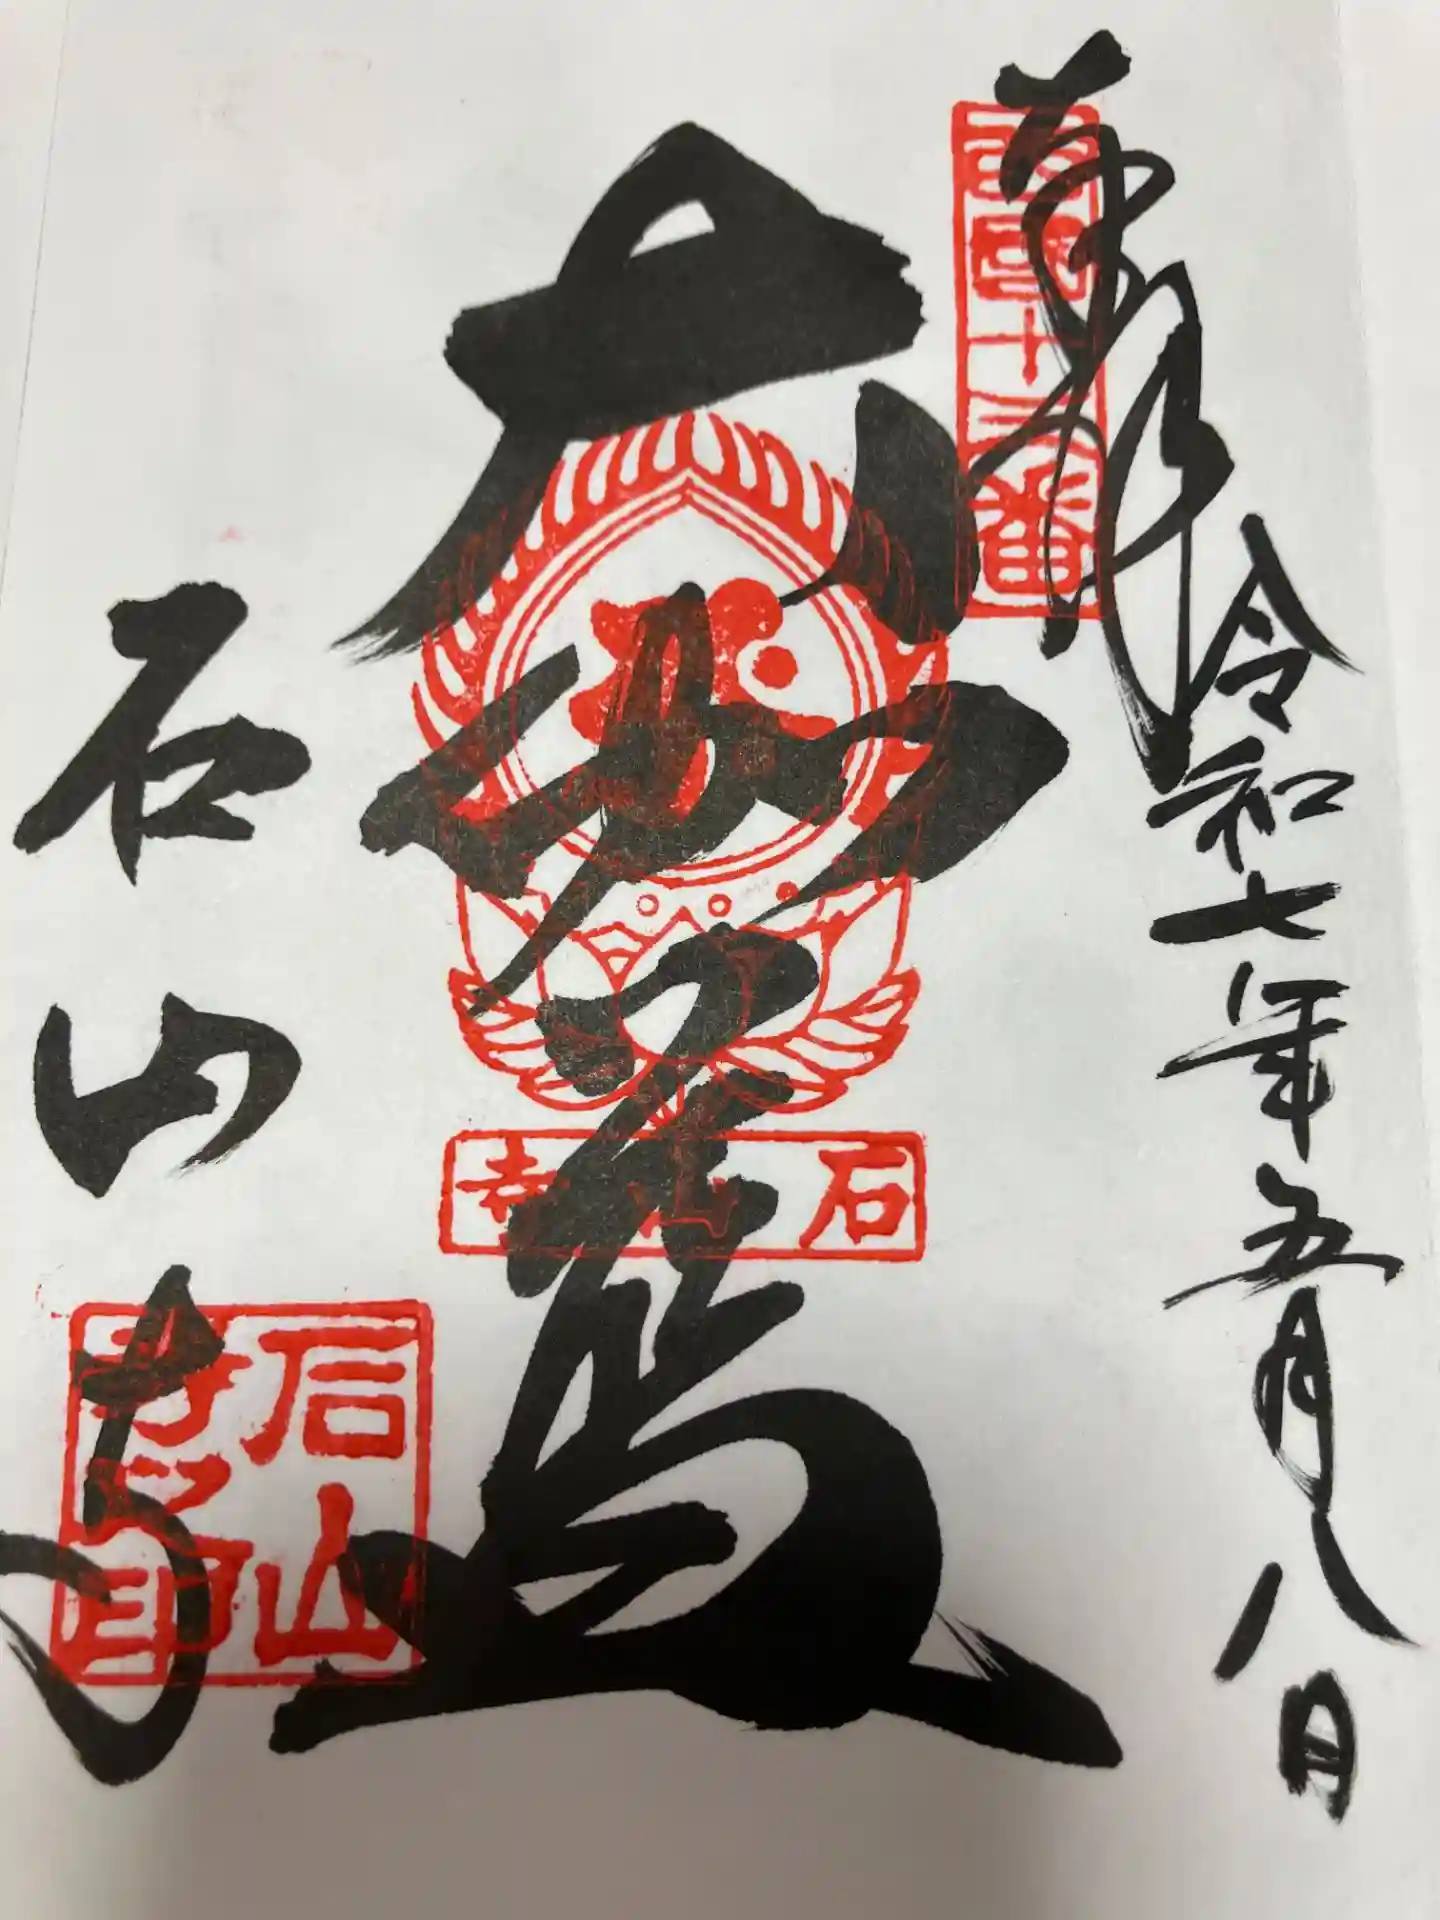 奉拝
令和七年五月八日
西国十三番
大伽藍
石山寺
石山寺
石山寺之印